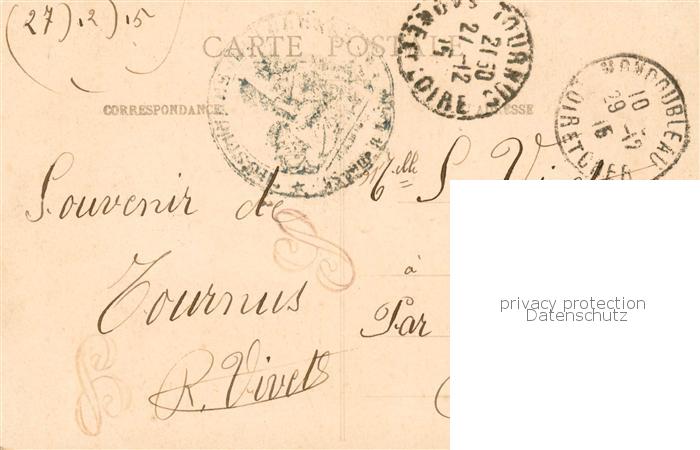 (27).12.15
CARTE POSTALE
TOURNUS
21 30
27-12
15
SAONE ET LOIRE
MONDOUBLEAU
10
29-12
15
LOIR ET CHER
CORRESPONDANCE
Melle S. Vi
Souvenir de
à
Tournus
Par
R. Vivet
privacy protection
Datenschutz